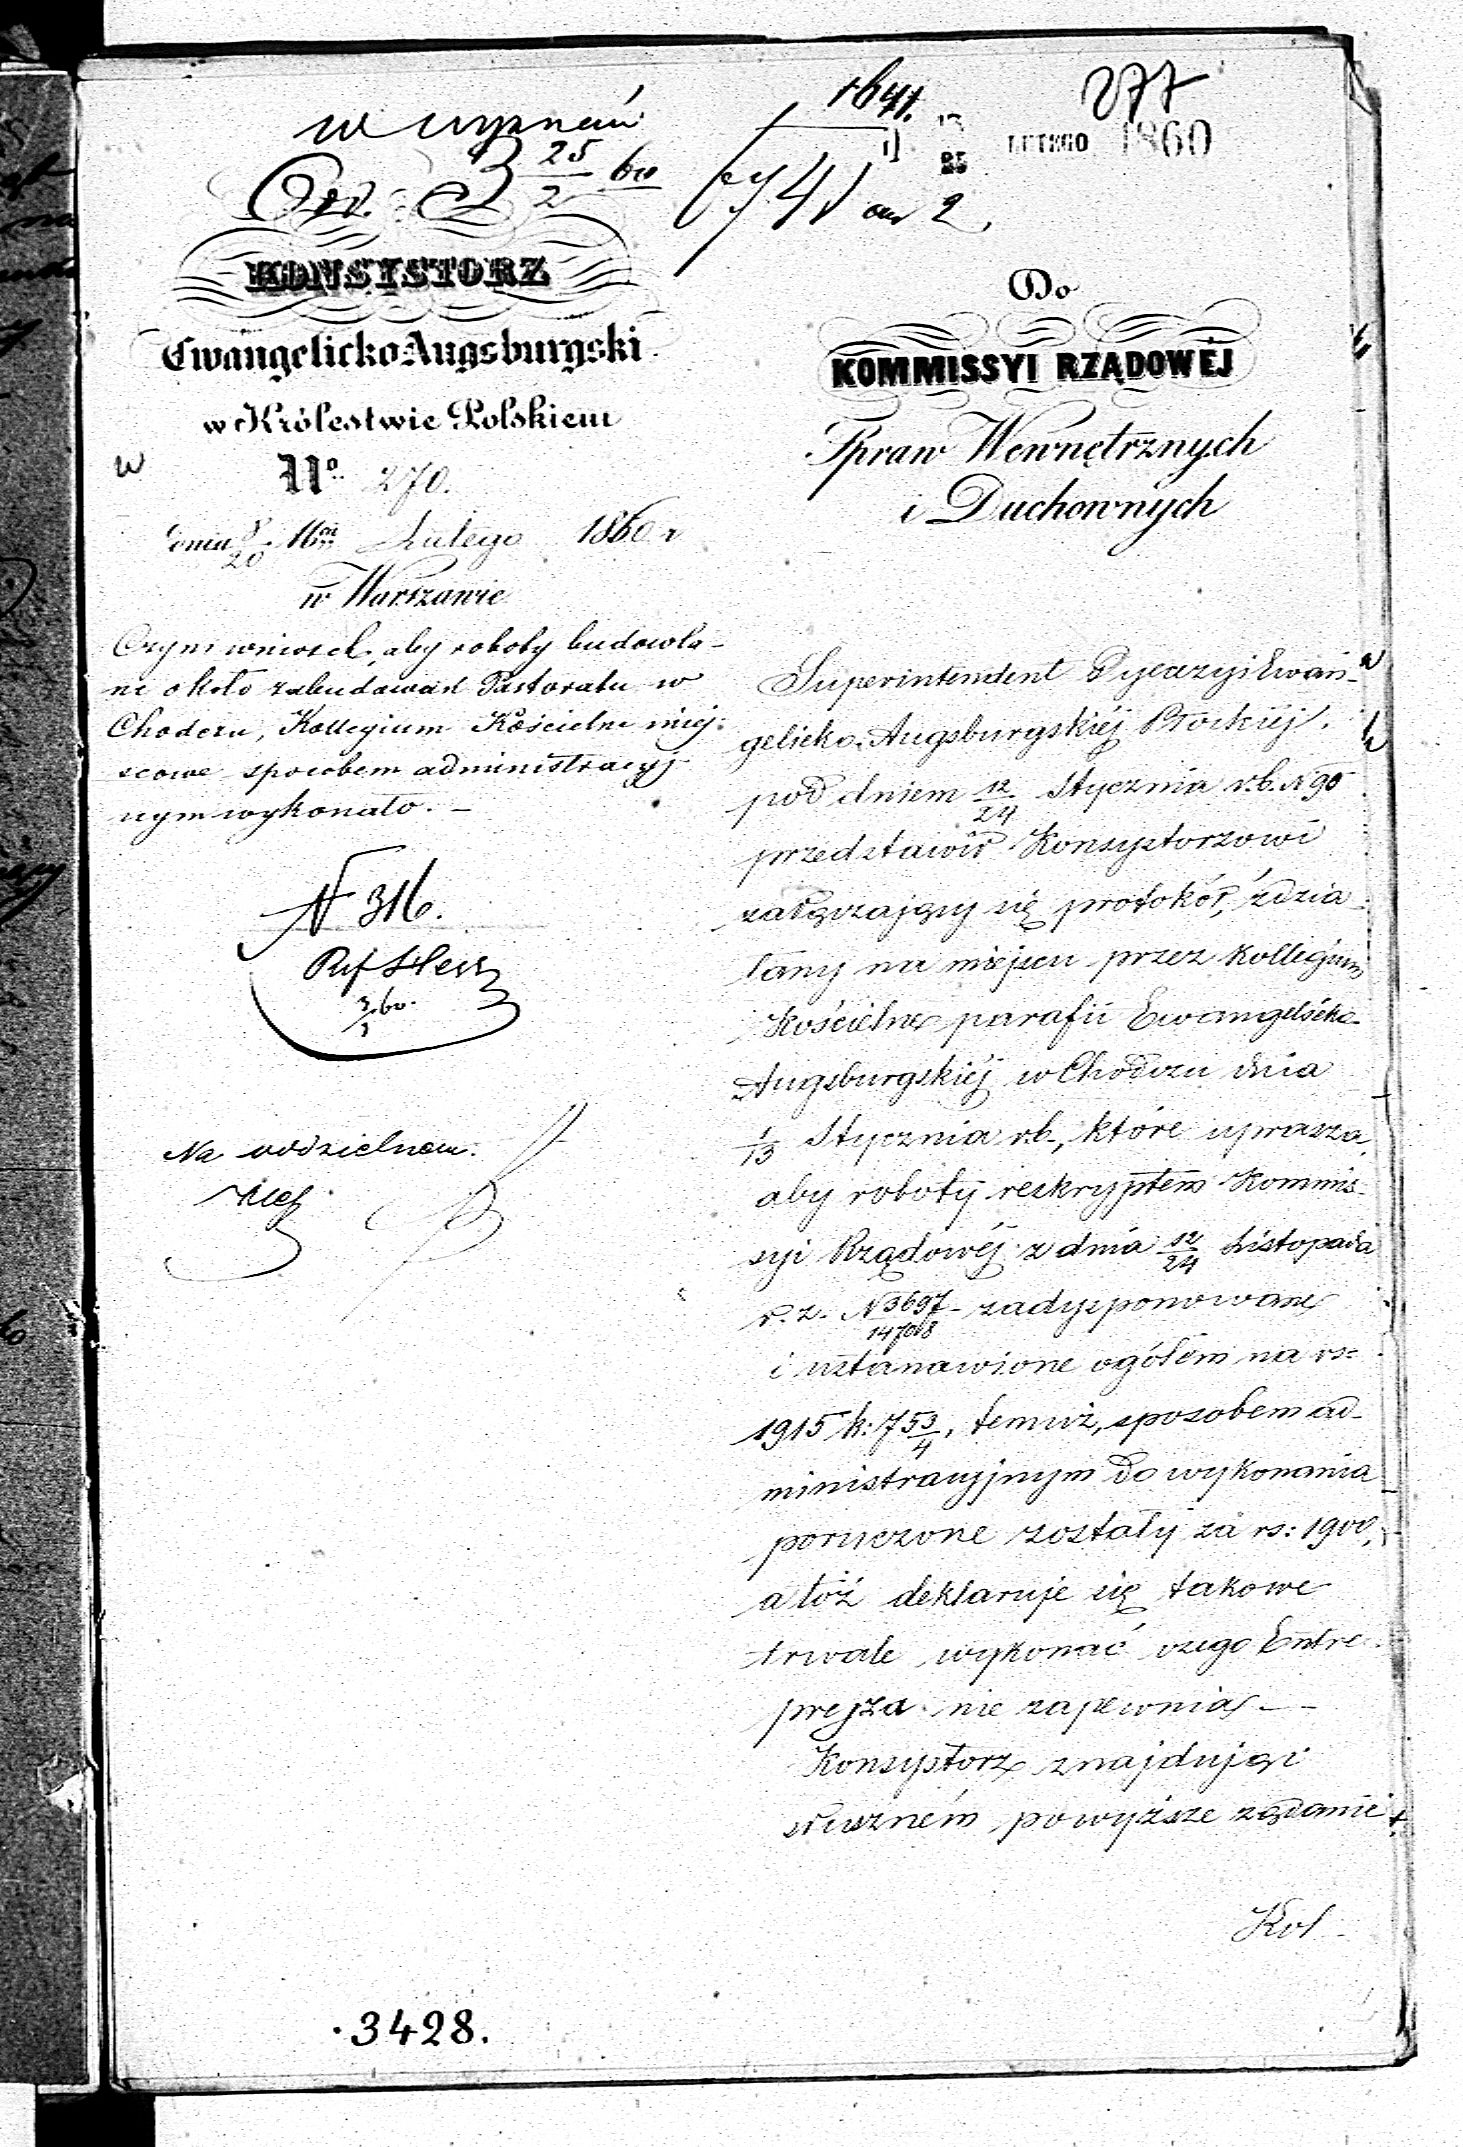 w wyznań
25/2 60
1641.
277
13
25
LUTEGO 1860
KONSYSTORZ
Ewangelicko Augsburgski
w Królestwie Polskiem
w
No 270.
dnia 8/20 Lutego 1860 r
w Warszawie
Czyni wniosek, aby roboty budowla-
ne około zabudowań Pastoratu w
Chodczu, Kollegium Kościelne miej-
scowe sposobem administracyj
nym wykonało. —
N 316.
Ref Hess
3/3 60.
Na oddzielnem.
Do
KOMMISSYI RZĄDOWÉJ
Spraw Wewnętrznych
i Duchownych
Superintendent Dyecezyi Ewan-
gelicko-Augsburgskiéj Płockiéj.
pod dniem 12/24 Stycznia r.b. N 90
przedstawił Konsystorzowi
załączający się protokół, zdzia-
łany na miejscu przez Kollegium
Kościelne parafii Ewangelicko
Augsburgskiéj w Chodczu dnia
1/13 Stycznia r.b., które uprasza,
aby roboty reskryptem Kommis-
syi Rządowéj z dnia 12/24 Listopada
r. z. N 3697/14708 zadysponowane
i ustanowione ogółem na rs:
1915 k: 75 3/4, temuż, sposobem ad-
ministracyjnym do wykonania
poruczone zostały za rs: 1900,
a toż deklaruje się takowe
trwale wykonać czego Entre-
preyza nie zapewnia, —
Konsystorz znajdując
słuszném powyższe żądanie
Kol
3428.